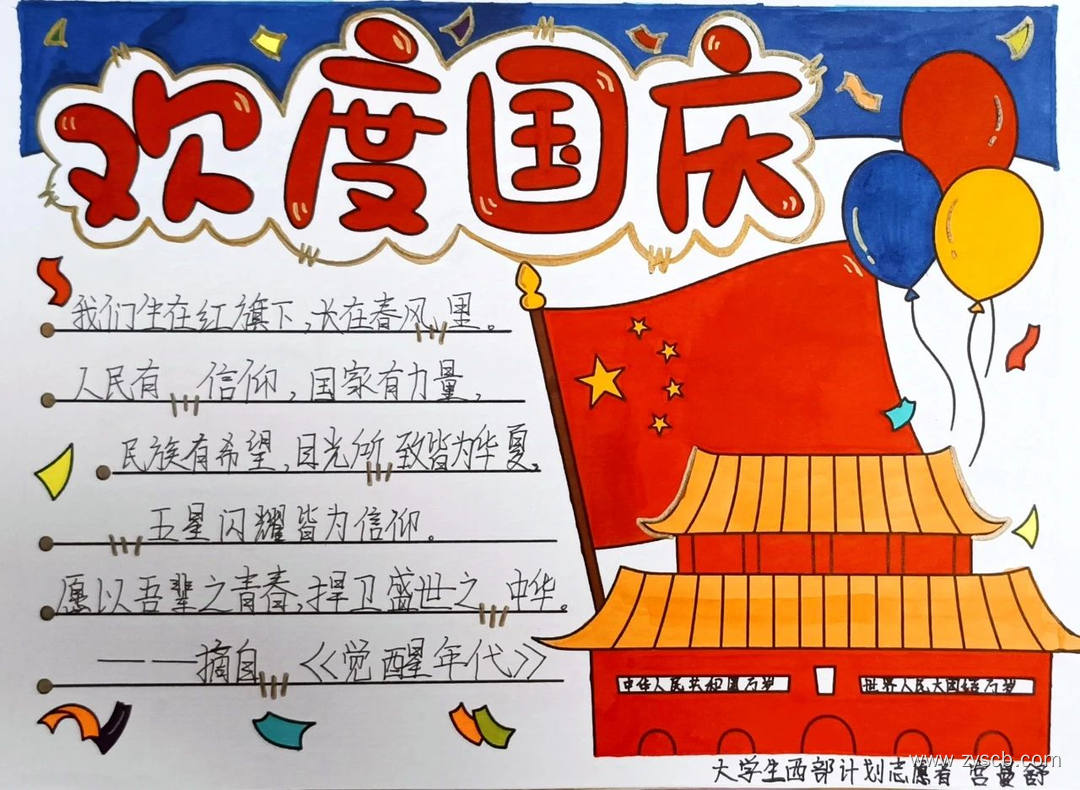 欢度国庆
我们生在红旗下,长在春风里。
人民有信仰,国家有力量,
民族有希望,目光所致皆为华夏,
五星闪耀皆为信仰。
愿以吾辈之青春,捍卫盛世之中华。
——摘自《觉醒年代》
中华人民共和国万岁
世界人民大团结万岁
大学生西部计划志愿者 宫曼舒
www.zyscb.com